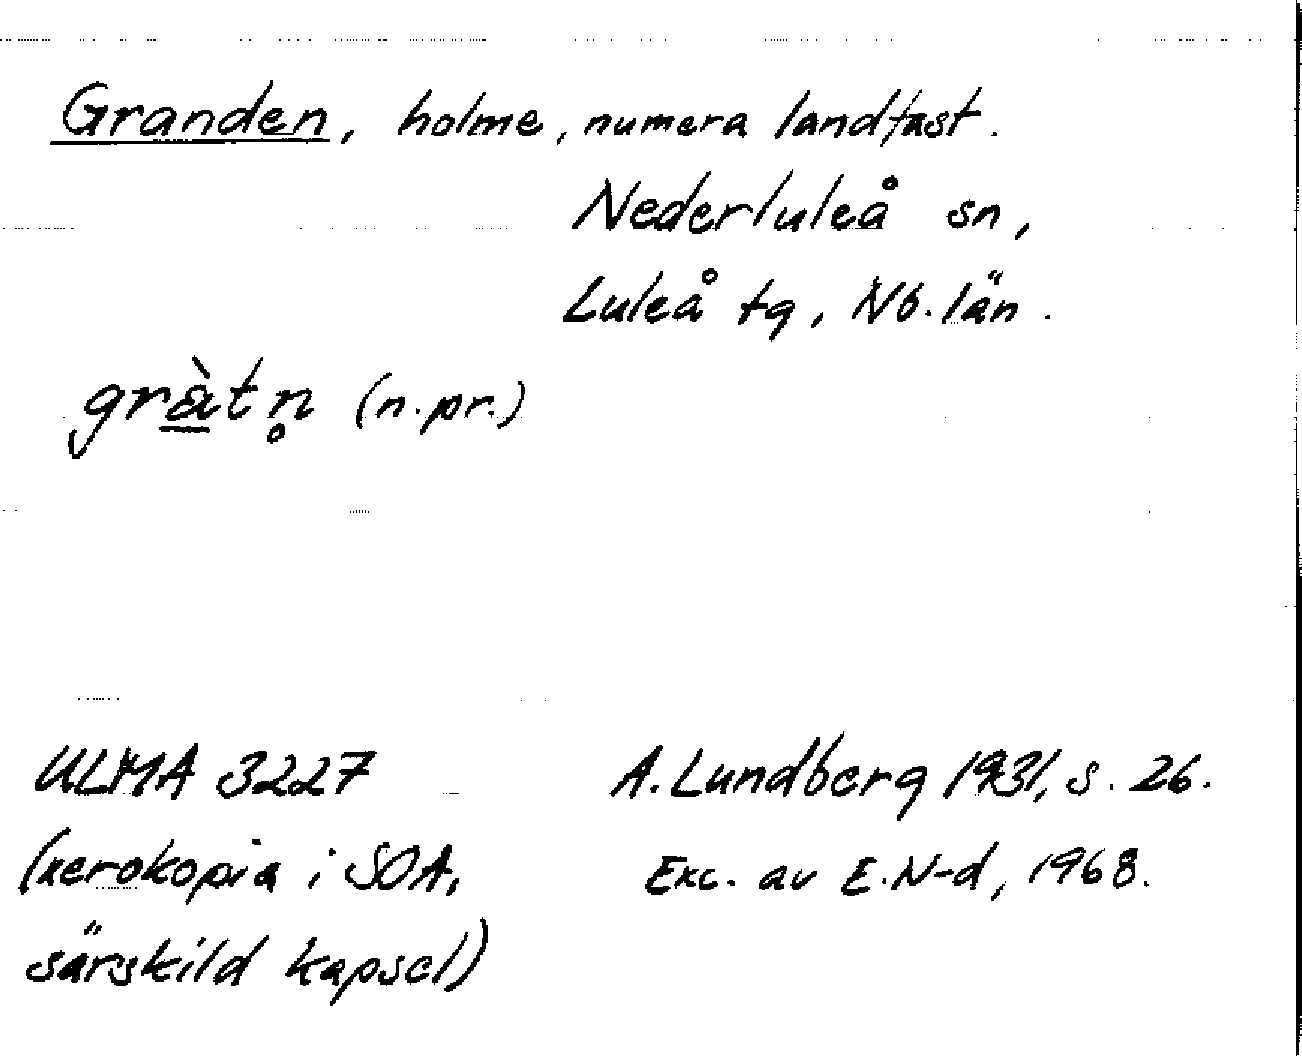 Granden, holme, numera landfast.
Nederluleå sn,
Luleå tg, Nb. län.
gràtn̥ (n.pr.)
ULMA 3227
(xerokopia i SOA,
särskild kapsel)
A. Lundberg 1931, s. 26.
Exc. av E.N-d, 1968.